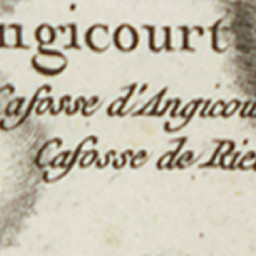 ngicourt
Cafosse d'Angicou
Cafosse de Rie